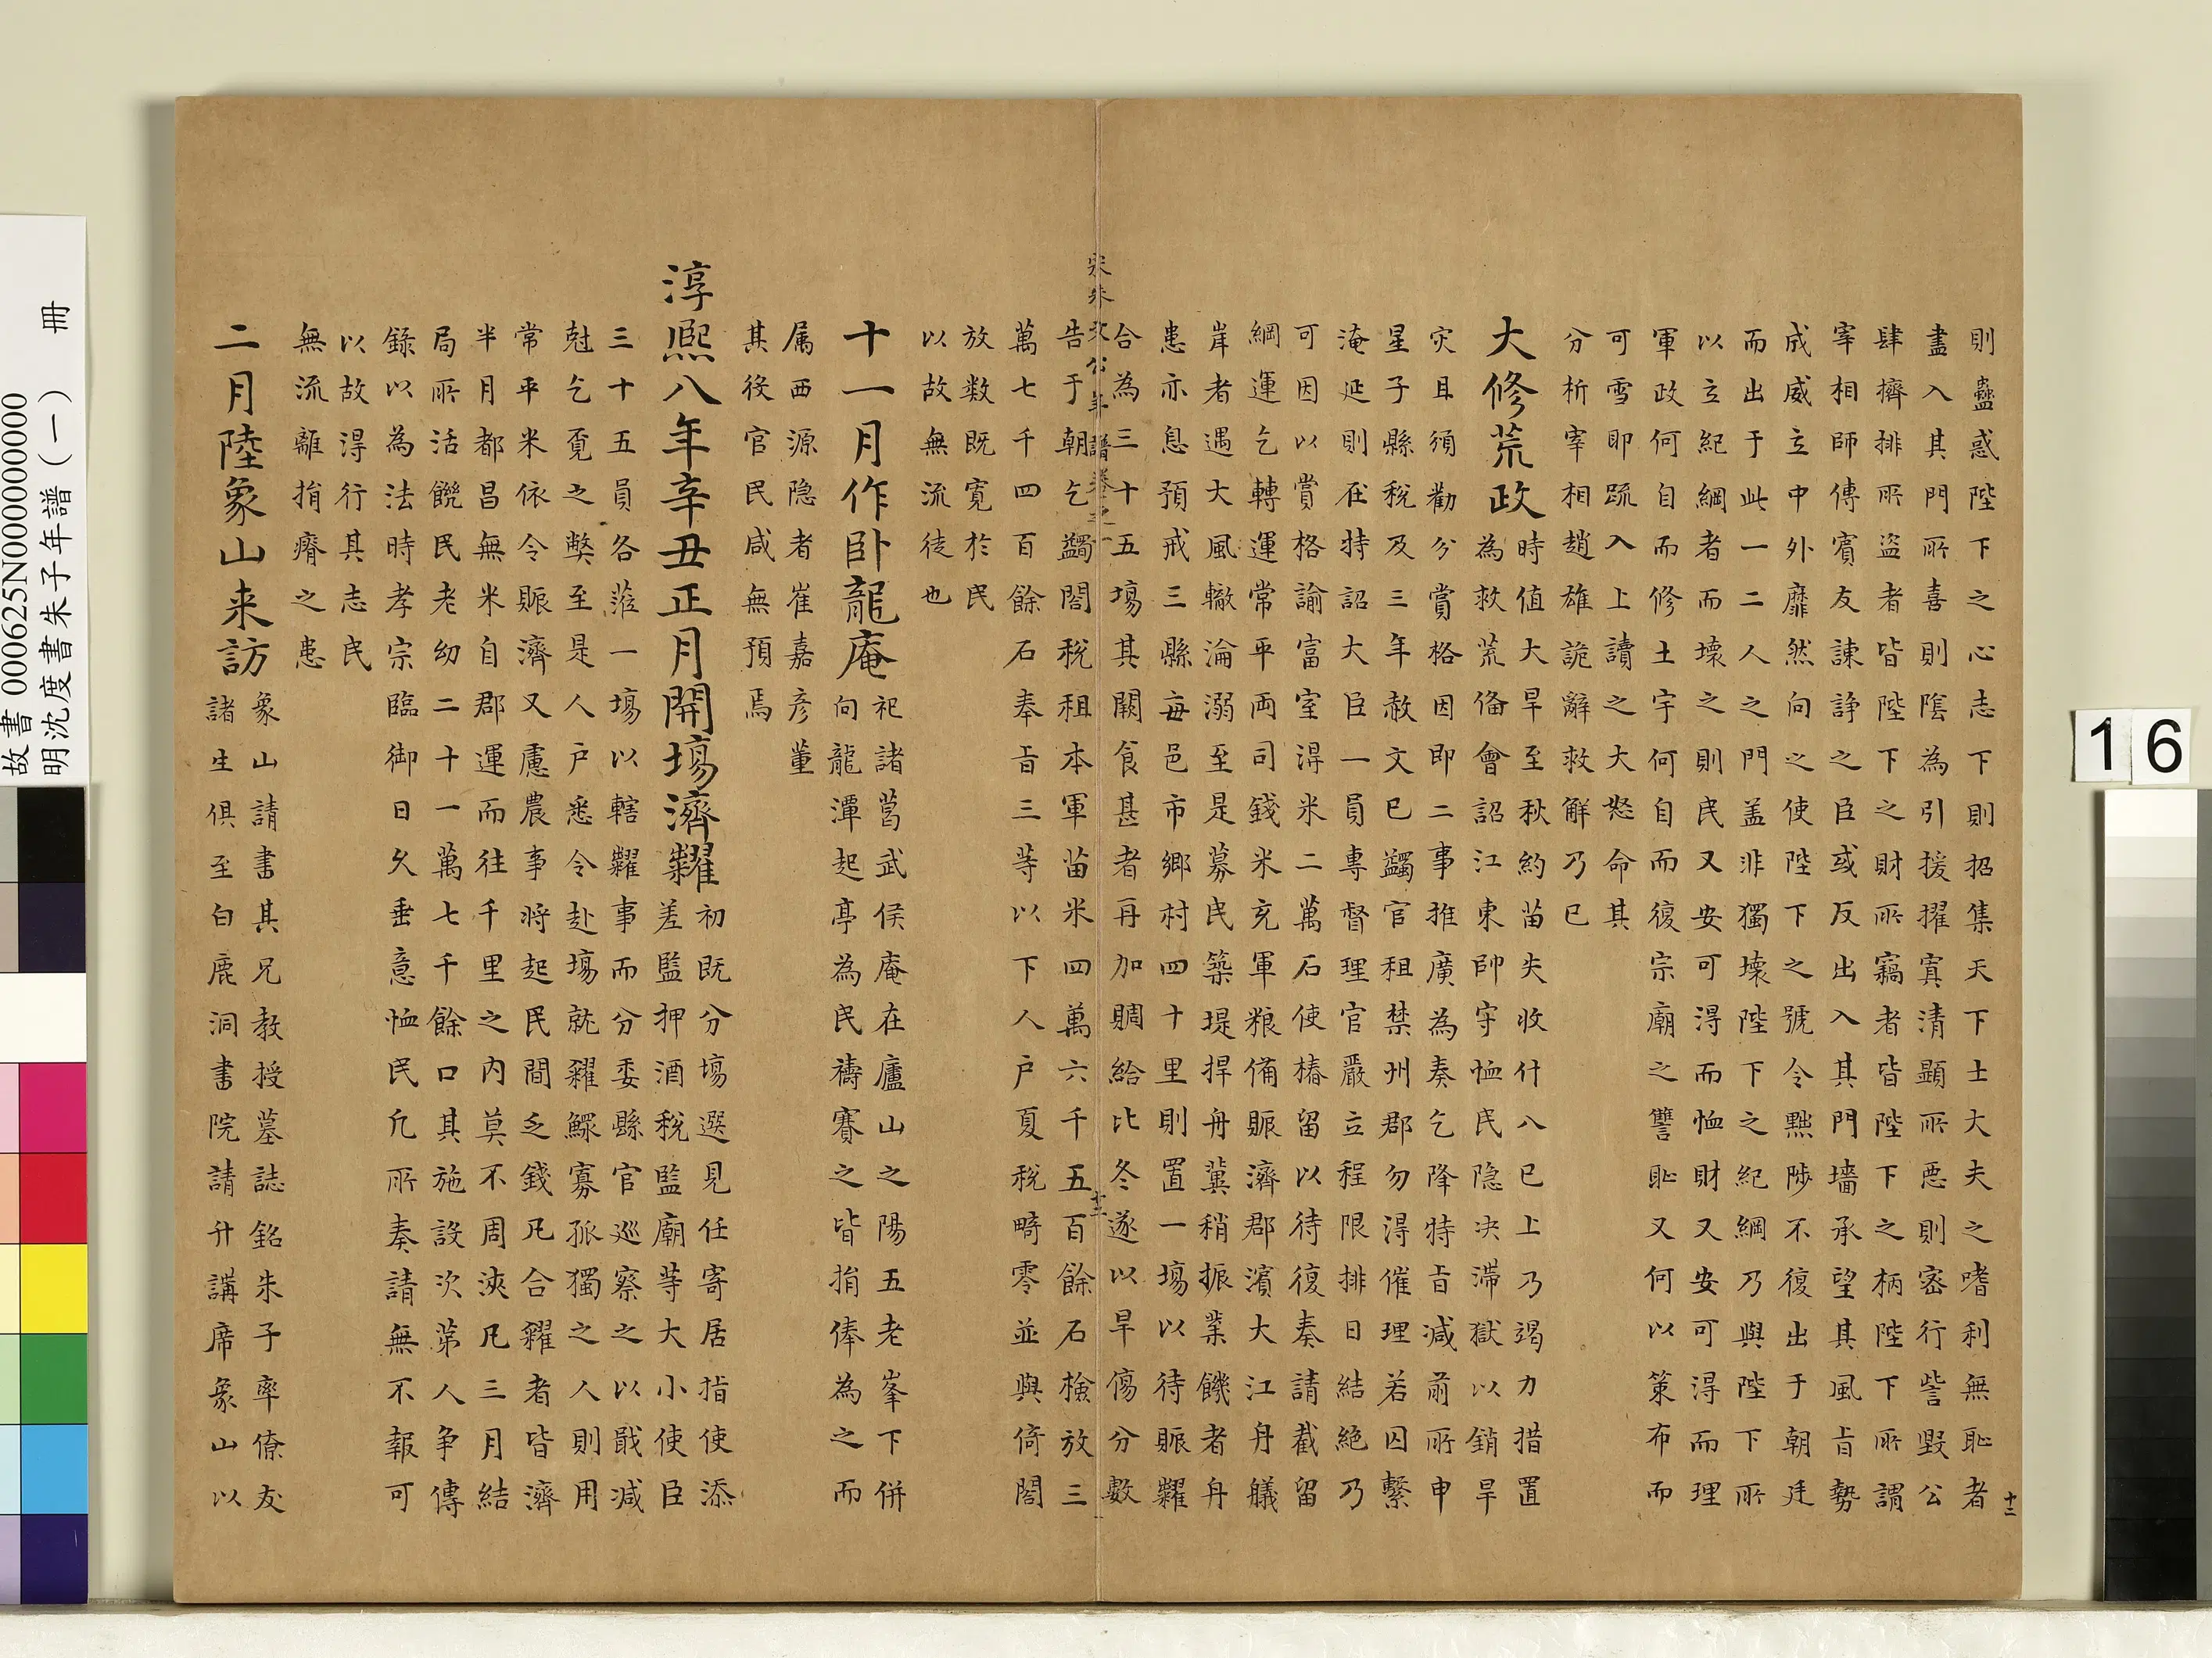 則蠱惑陛下之心志下則招集天下士大夫之嗜利無恥者
盡入其門所喜則陰為引援擢寘清顯所惡則密行訾毀公
肆擠排所盜者皆陛下之財所竊者皆陛下之柄陛下所謂
宰相師傅賓友諫諍之臣或反出入其門墻承望其風旨勢
成威立中外靡然向之使陛下之號令黜陟不復出于朝廷
而出于此一二人之門盖非獨壞陛下之紀綱乃與陛下所
以立紀綱者而壞之則民又安可得而恤財又安可得而理
軍政何自而修土宇何自而復宗廟之讐恥又何以策布而
可雪耶疏入上讀之大怒命其
分析宰相趙雄詭辭救解乃已
大修荒政
時值大旱至秋約苗失收什八已上乃竭力措置
為救荒備會詔江東帥守恤民隐决滯獄以銷旱
灾且須勸分賞格因即二事推廣為奏乞降特旨减前所申
星子縣稅及三年赦文已蠲官租禁州郡勿得催理若囚繫
淹延則在特詔大臣一員專督理官嚴立程限排日結絶乃
可因以賞格諭富室得米二萬石使椿留以待復奏請截留
綱運乞轉運常平両司錢米充軍粮備賑濟郡濱大江丹艤
岸者遇大風轍淪溺至是募民築堤捍舟冀稍振業饑者舟
患亦息預戒三縣每邑市鄉村四十里則置一場以待賑糶
合為三十五場其闕食甚者再加賙給比冬遂以旱傷分數
宋朱文公年譜卷之一
十三
告于朝乞蠲閣税租本軍苗米四萬六千五百餘石檢放三
萬七千四百餘石奉旨三等以下人户夏税畸零並與倚閣
放数既寛於民
以故無流徒也
十一月作卧龍庵
祀諸葛武侯庵在廬山之陽五老峯下併
向龍潭起亭為民禱賽之皆捐俸為之而
属西源隐者崔嘉彦董
其役官民咸無預焉
淳熙八年辛丑正月開場濟糶
初既分場選見任寄居指使添
差監押酒税監廟等大小使臣
三十五員各蒞一場以轄糶事而分委縣官巡察之以戢减
尅乞覔之弊至是人户悉令赴場就糴鰥寡孤獨之人則用
常平米依令賑濟又慮農事将起民間乏錢凡合糴者皆濟
半月都昌無米自郡運而往千里之内莫不周浹凡三月結
局所活饑民老幼二十一萬七千餘口其施設次第人争傳
錄以為法時孝宗臨御日久垂意恤民凡所奏請無不報可
以故得行其志民
無流離捐瘠之患
二月陸象山来訪
象山請書其兄教授墓誌銘朱子率僚友
諸生俱至白鹿洞書院請升講席象山以
十二
16
故書 000625N000000000
明沈度書朱子年譜（一） 冊